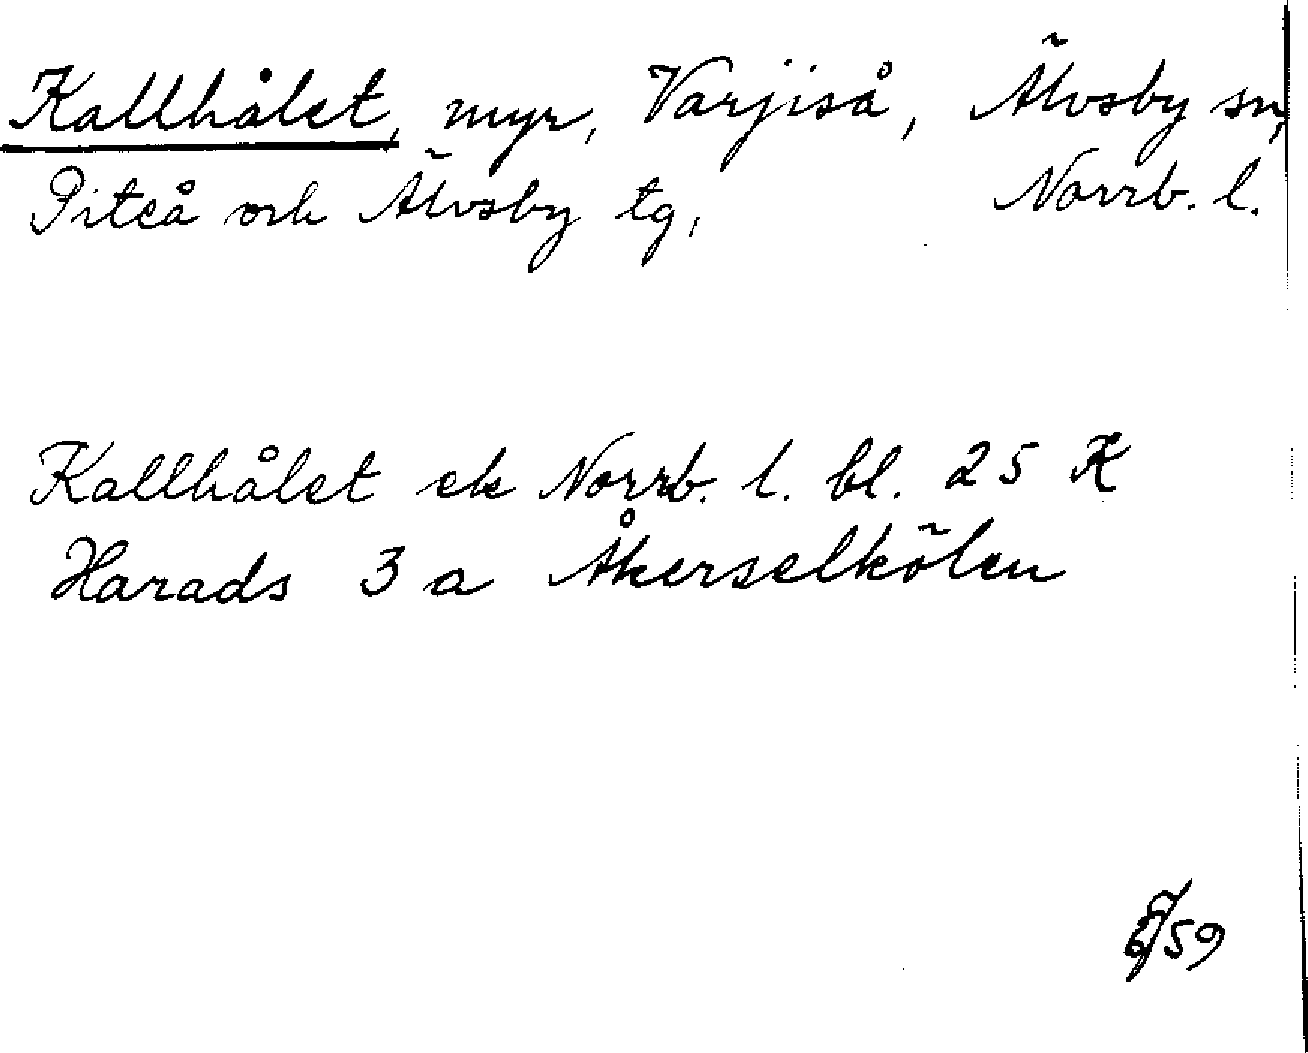 Kallhålet, myr, Varjiså, Älvsby sn,
Piteå och Älvsby tg, Norrb. l.
Kallhålet ek Norrb. l. bl. 25 K
Harads 3 a Åkerselkölen
59